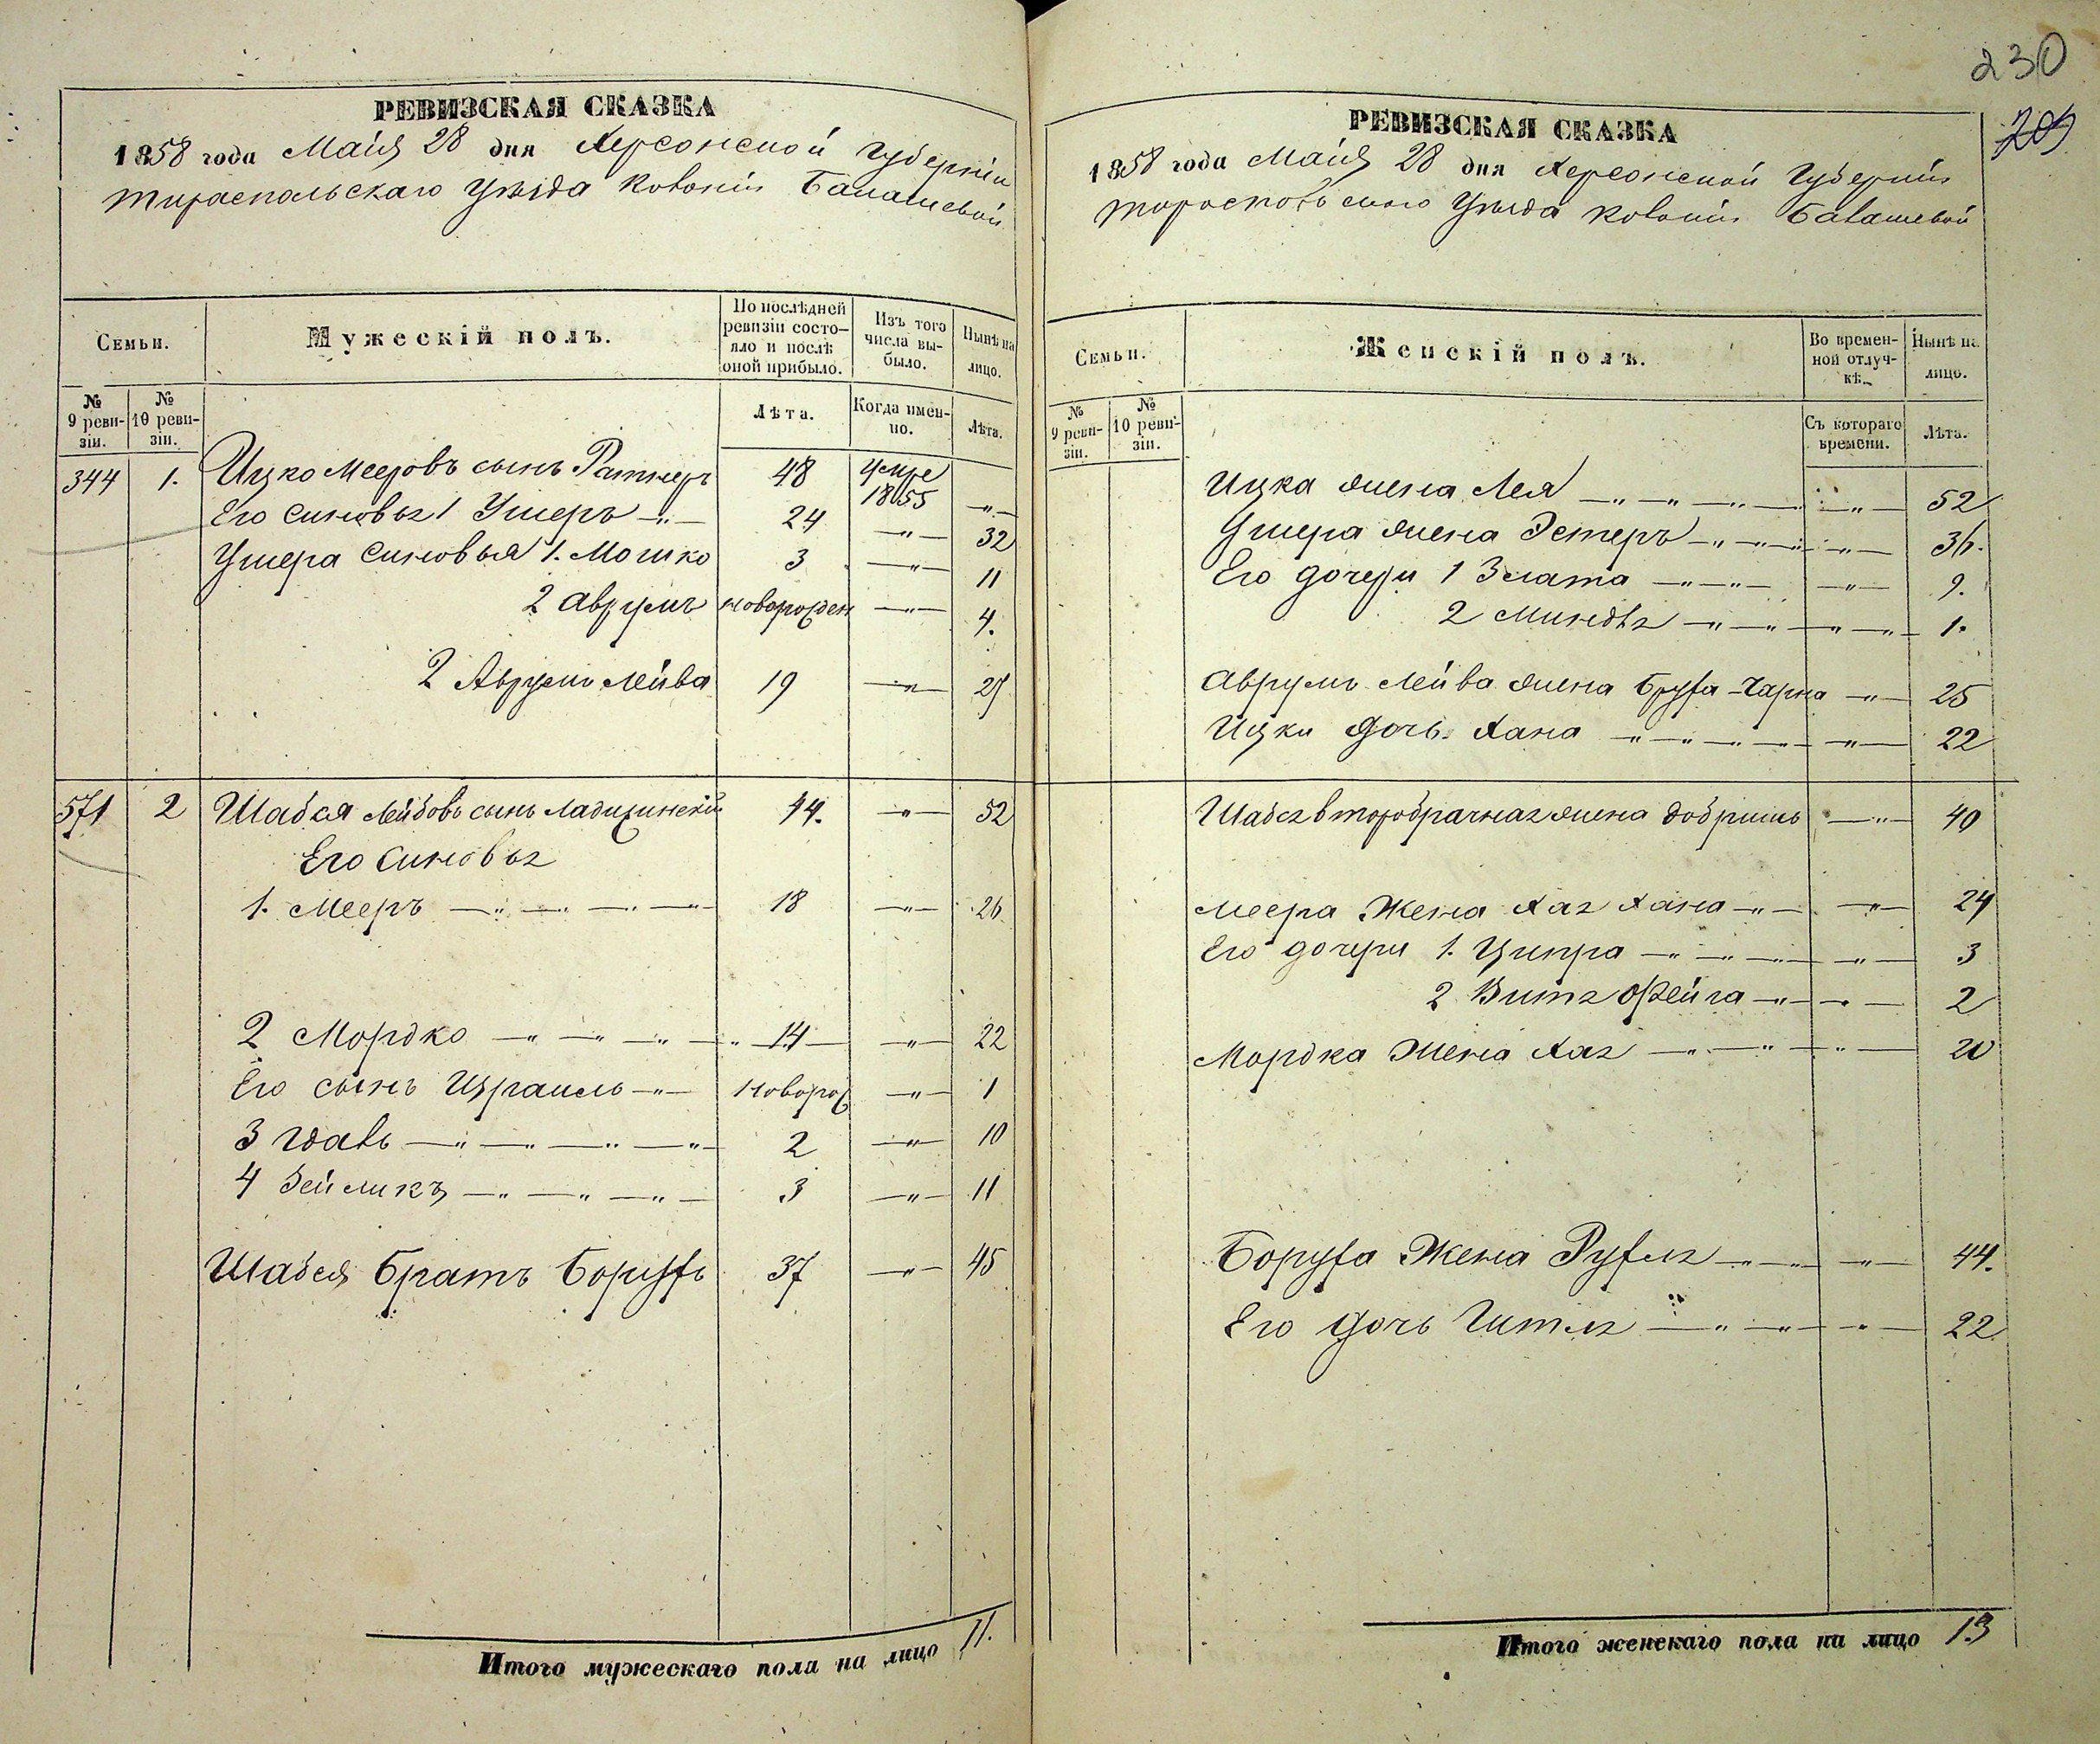 230
209
РЕВИЗСКАЯ СКАЗКА
1858 года Майя 28 дня Херсонской Губернiи
Тираспольскаго Уѣзда Колонiи Балашевой
Семьи.
Мужескiй полъ.
По послѣдней ревизiи состояло и послѣ оной прибыло.
Изъ того числа выбыло.
Нынѣ на лицо.
№ 9 ревизiи.
№ 10 ревизiи.
Лѣта.
Когда именно.
Лѣта.
344 1. Ицко Мееровъ сынъ Ратнеръ 48 умре 1855 -„-
Его синовья 1 Ушеръ -„- 24 -„- 32
Ушера Синовья 1. Мошко 3 -„- 11
2 Аврумъ новорожден -„- 4.
2 Аврумъ Лейва 19 -„- 27
571 2 Шабся Лейбовъ сынъ Ладижинскiй 44. -„- 52
Его Синовья
1. Мееръ -„- -„- -„- 18 -„- 26
2 Мордко -„- -„- -„- 14 -„- 22
Его сынъ Израиль -„- новорож -„- 1
3 Юдаль -„- -„- -„- 2 -„- 10
4 Зейликъ -„- -„- -„- 3 -„- 11
Шабся Братъ Борухъ 37 -„- 45
Итого мужескаго пола на лицо 11.
РЕВИЗСКАЯ СКАЗКА
1858 года Майя 28 дня Херсонской Губернiи
Тироспольского Уѣзда Колонiи Балашевой
Семьи.
Женскiй полъ.
Во временной отлучкѣ.
Нынѣ на лицо.
№ 9 ревизiи.
№ 10 ревизiи.
Съ котораго времени.
Лѣта.
Ицка жена Лея -„- -„- -„- -„- 52
Ушера жена Эстеръ -„- -„- -„- 36.
Его дочери 1 Злата -„- -„- 9.
2 Миндля -„- -„- -„- -„- 1.
Аврумъ Лейва жена Бруха-Чарна -„- 25
Ицки дочь Хана -„- -„- -„- -„- 22
Шабся второбрачная жена Добришь -„- 40
Меера Жена Хая Хана -„- -„- 24
Его дочери 1. Ципра -„- -„- -„- -„- 3
2 Витя Фейга -„- -„- 2
Мордка Жена Хая -„- -„- -„- 20
Боруха Жена Рухля -„- -„- -„- 44.
Его дочь Гитля -„- -„- -„- 22
Итого женскаго пола на лицо 13